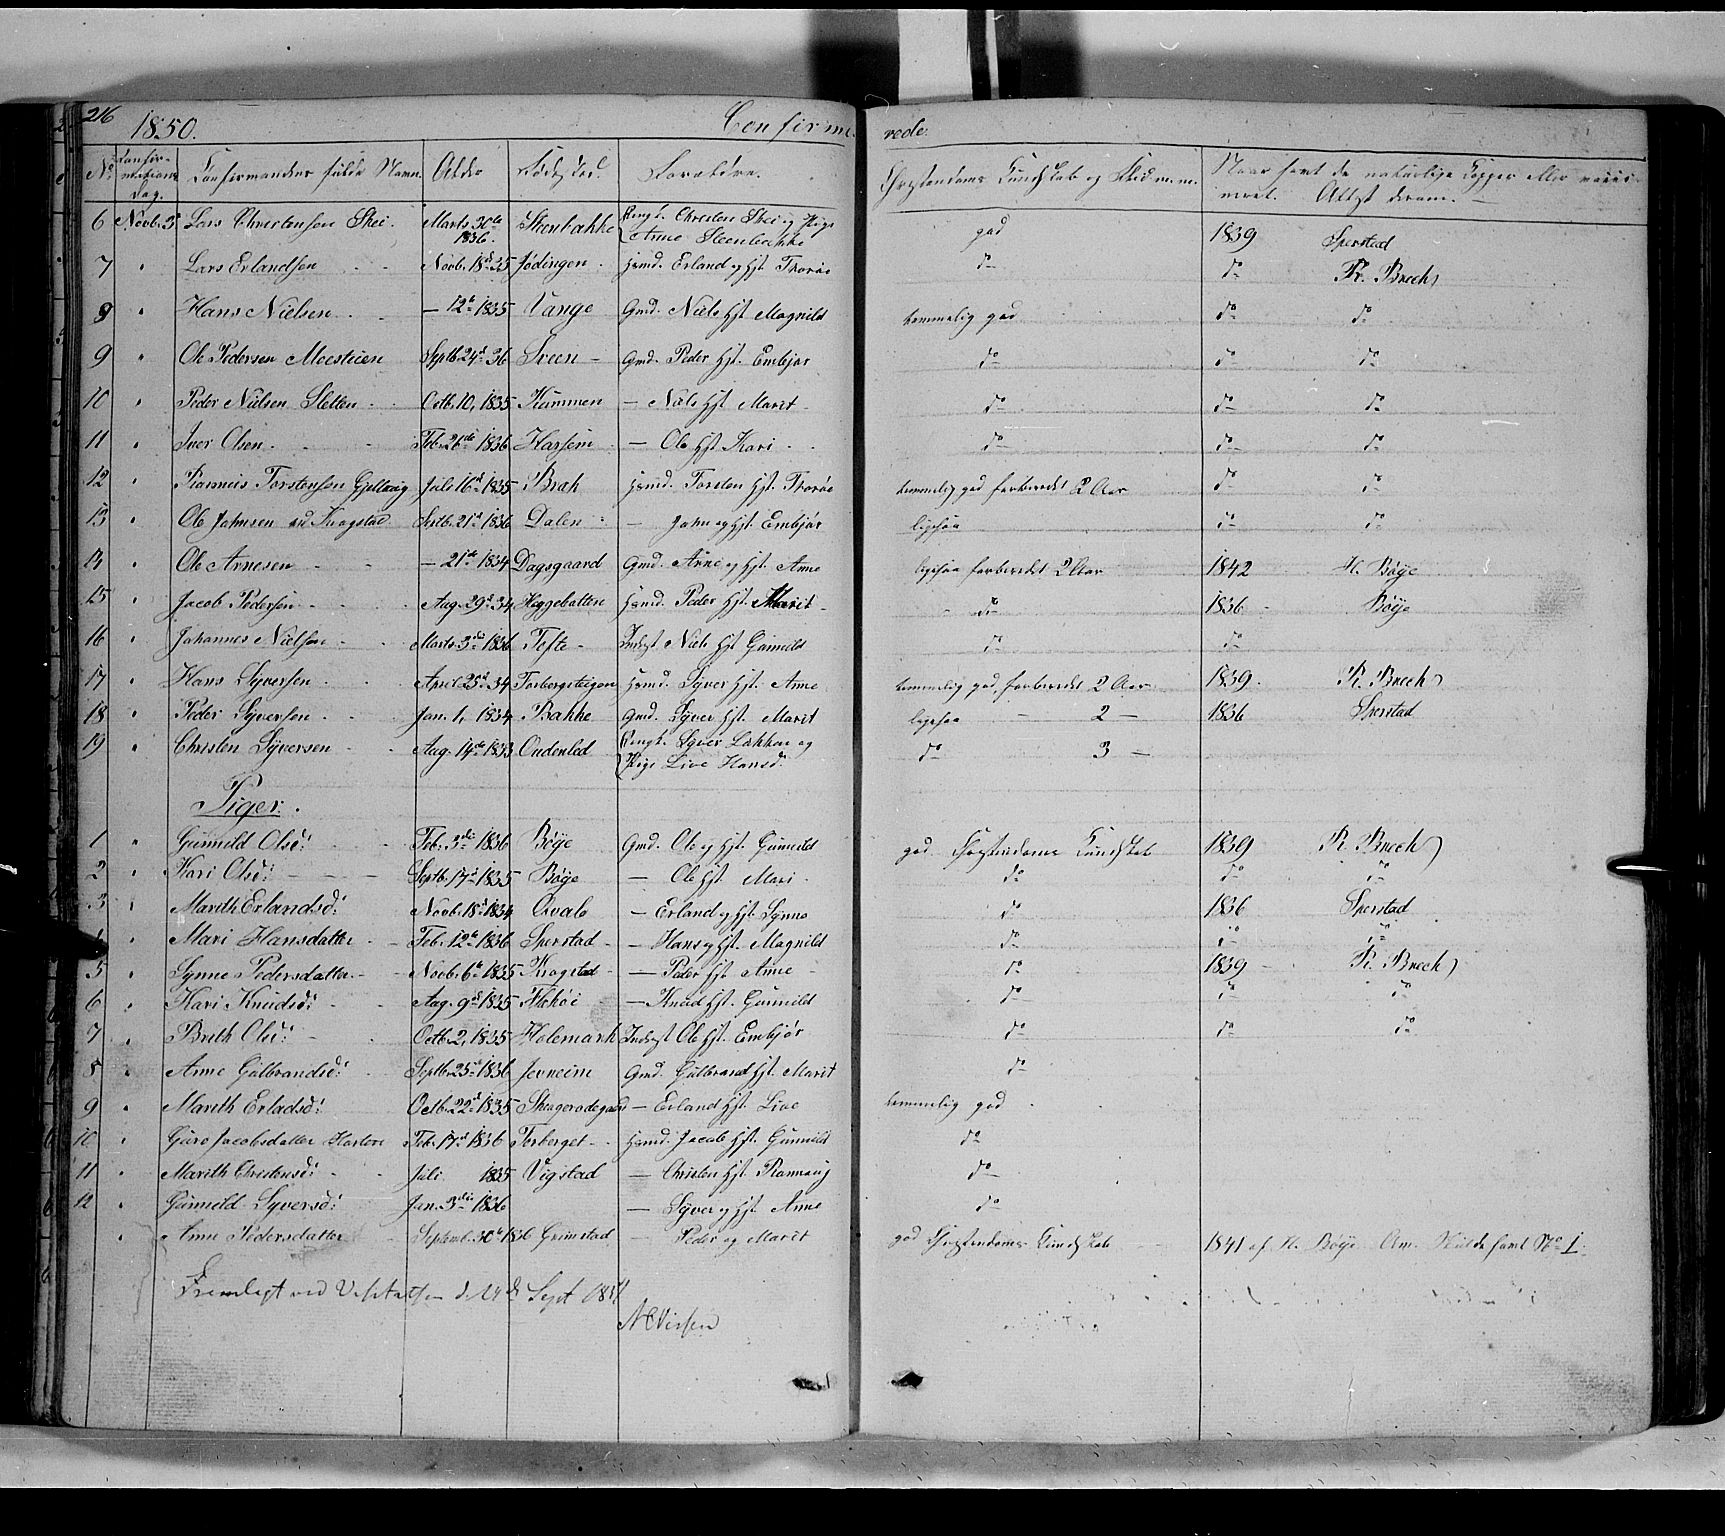 216
1850. Confirme- rede.
No. Confirmations Dag. Confirmandens fulde Navn. Alder Fødested. Forældre. Christendoms Kundskab og Naar samt de naturlige Kopper eller Attest derom.
6 Novb. 3 Lars Christensen Skei. Marts 30te 1836. Steenbakke Ungk. Christen Skei og Pige Anne Steenbakke god 1839 Sperstad
7 " Lars Erlandsen Novb. 18d 35 Jødingen Husmd. Erland og Hst. Thorøe do do R. Brech
8 " Hans Nielsen — 12te 1835 Vange Gmd. Niels Hst. Magnild temmelig god do do
9 " Ole Pedersen Moesteien Septb. 24d 36 Sveen Gmd. Peder Hst. Embjør do do do
10 " Peder Nielsen Sletten Octb. 10, 1835 Kummen — Niels Hst. Marit do do do
11 " Iver Olsen Feb. 26de 1836 Harseim — Ole Hst. Kari do do do
12 " Torstensen Juli 16d 1835 Brah Husmd. Torsten Hst. Thorøe temmelig god forberedt 2 Aar do do
13 " Ole Johnsen Kragstad Septb. 21d 1836 Dalen — John og Hst. Embjør ligesaa do do
13 " Ole Arnesen — 21de 1834 Dagsgaard Gmd. Arne og Hst. Anne ligesaa forberedt 2 Aar 1842 H. Bøye
15 " Jacob Pedersen Aug. 29d 34 Heggebatten Husmd. Peder Hst. Marit do 1836 Bøye
16 " Johannes Nielsen Marts 3die 1836 Tefte Inds. Niels Hst. Gunnild do do
17 " Hans Syversen April 25d 34 Torbergsteigen Husmd. Syver Hst. Anne temmelig god, forberedt 2 Aar 1839. R. Brech
18 " Peder Syversen Jan. 1, 1834 Bakke Gmd. Syver Hst. Marit ligesaa — 2 — 1836 Sperstad
19 " Christen Syversen Aug. 14de 1833 Oudenled Ungk. Syver Løkken og Pige Live Hansd. do 3 —
Piger.
1 " Gunnild Olsd: Feb. 3die 1836 Bøye Gmd. Ole og Hst. Gunnild god Christendoms Kundskab 1839 R. Brech
2 " Kari Olsd: Septb. 17d 1835 Bøye — Ole Hst. Mari do do do
3 " Marith Erlandsd: Novb. 18d 1834 Qvale — Erland og Hst. Synne do 1836 Sperstad
4 " Mari Hansdatter Feb. 12te 1836 Sperstad — Hans og Hst. Magnild do do do
5 " Synne Pedersdatter Novb. 6te 1835 Kragstad — Peder Hst. Anne do 1839 R. Brech
6 " Kari Knudsd: Aug. 9d 1835 — Knud Hst. Gunnild do do do
7 " Brith Olsd: Octb. 2, 1835 Holemark Inds. Ole Hst. Embjør do do do
8 " Anne Gulbrandsd: Septb. 25d 1836 Jevneim Gmd. Gulbrand Hst. Marit do
9 " Marith Erladsd: Octb. 22d 1835 — Erland Hst. Live temmelig god
10 " Guro Jacobsdatter Feb. 17d 1836 Torberget Husmd. Jacob Hst. Gunnild do
11 " Marith Christensd: Juli 1835 Vigstad — Christen Hst. Rannaug do
12 " Gunnild Syversd: Jan. 3die 1836 — Syver og Hst. Anne do
" Anne Pedersdatter Septemb. 30te 1836 Grimstad — Peder og Marit god Christendoms Kundskab 1841 af H. Bøye No 1.
Fremlagt ved Visitatsen d. 14d Sept